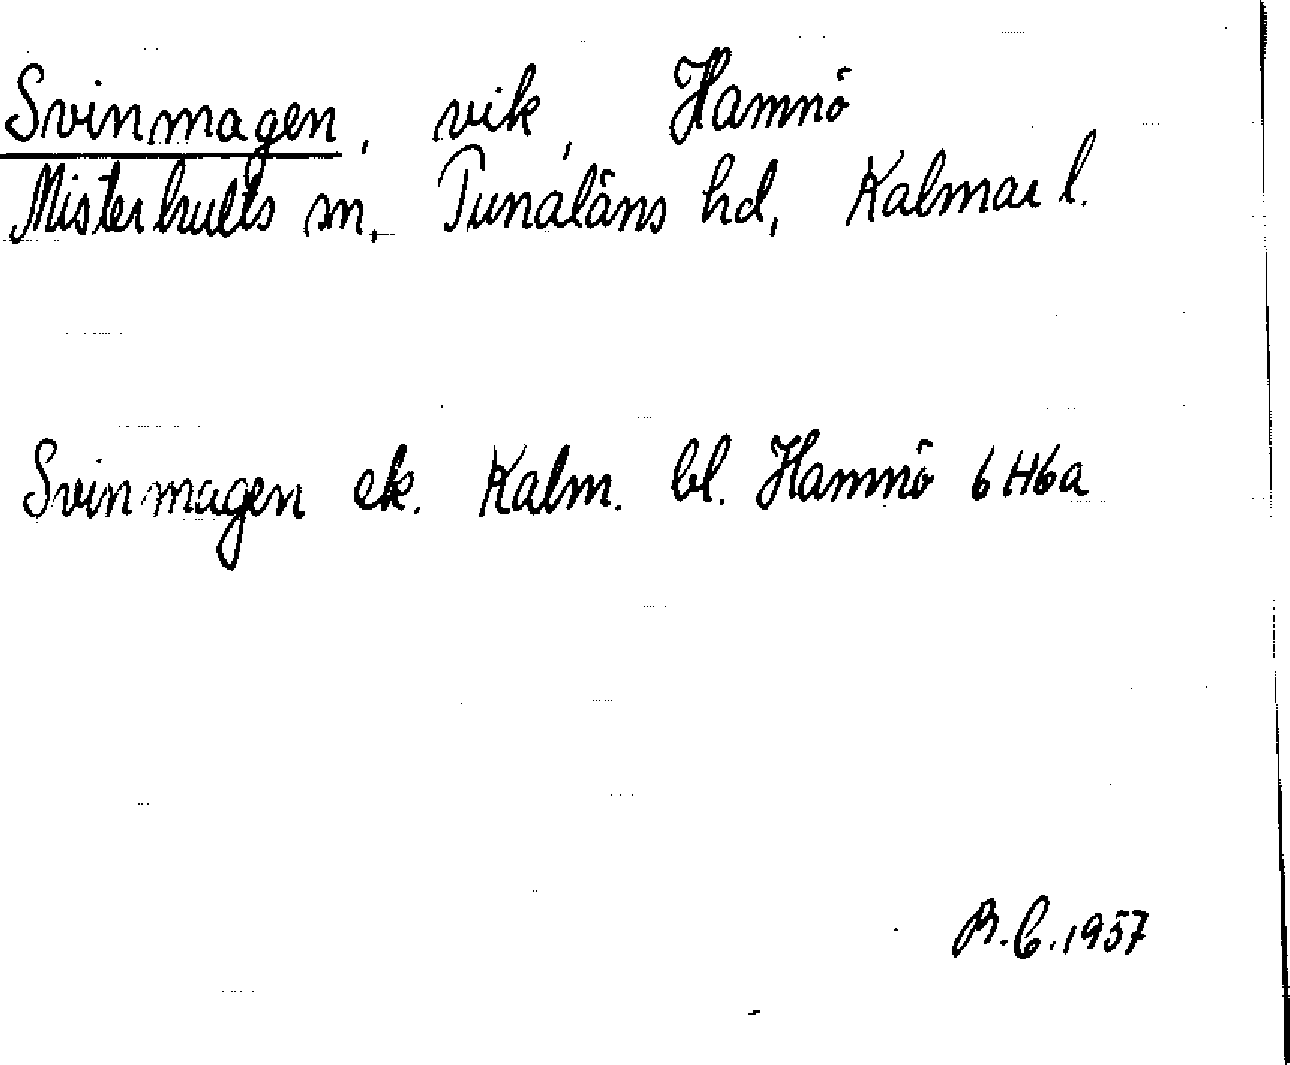 Svinmagen, vik, Hamnö
Misterhults sn, Tunaläns hd, Kalmar l.
Svinmagen ek. Kalm. bl. Hamnö 6H6a
B.C. 1957